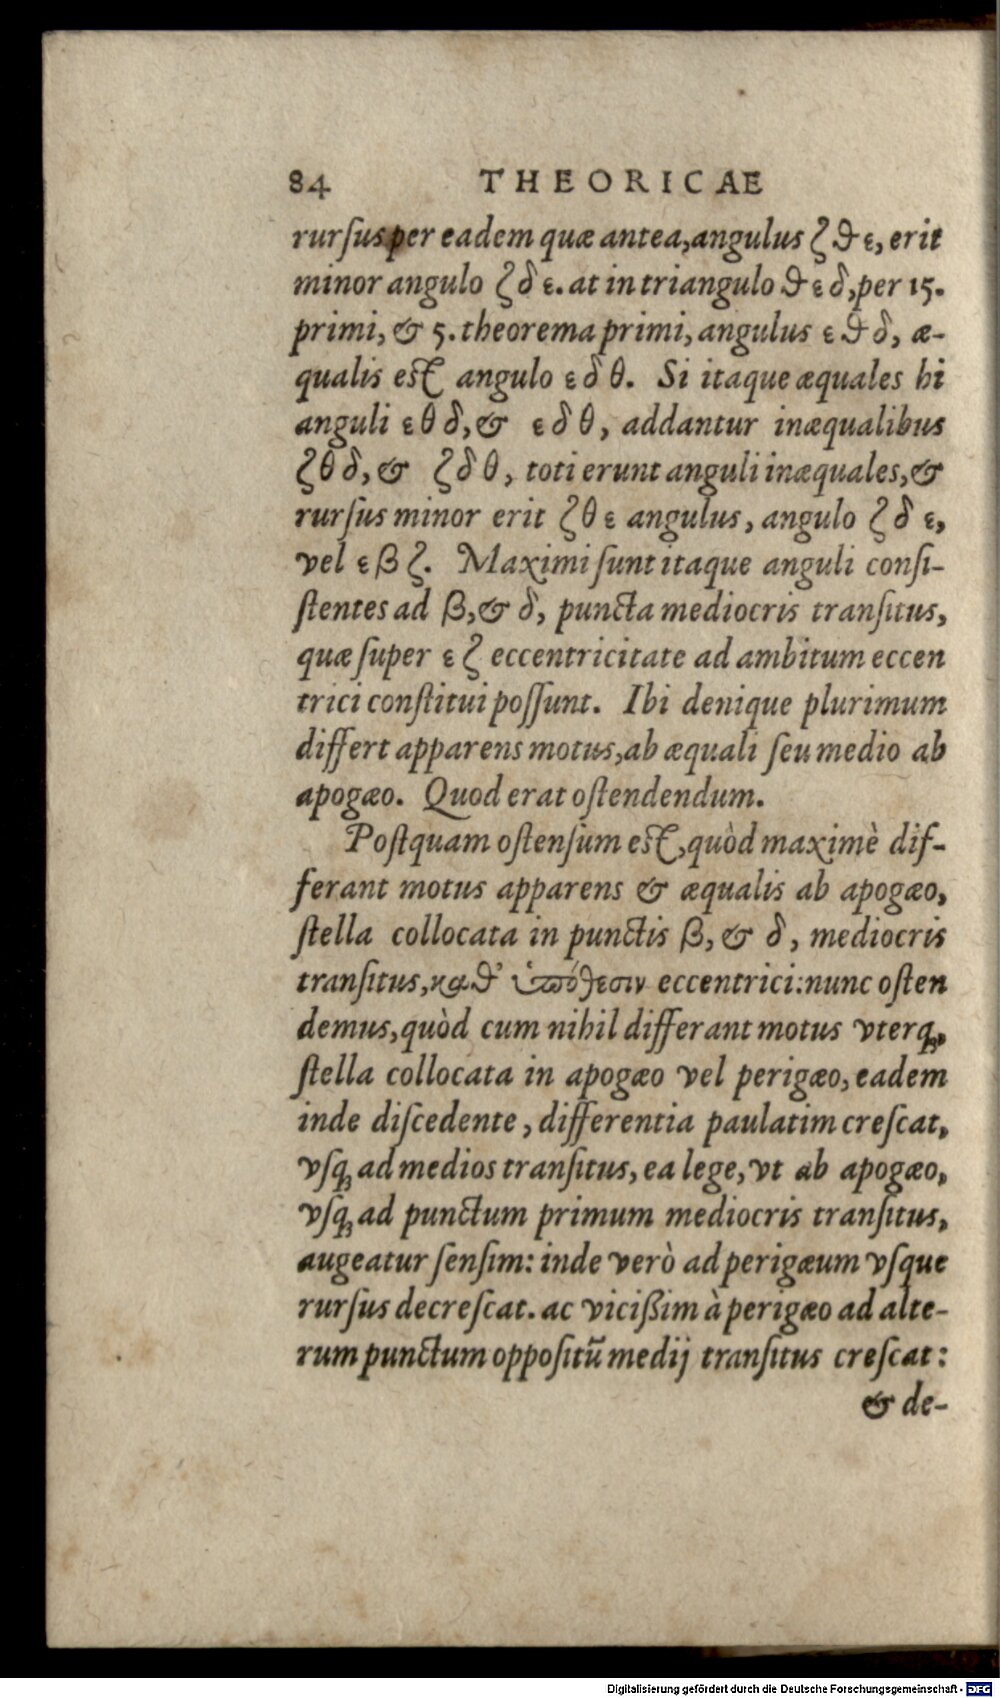 84 THEORICAE
rurſus per eadem quæ antea, angulus ζ ϑ ε, erit
minor angulo ζ δ ε. at in triangulo ϑ ε δ, per 15.
primi, & 5. theorema primi, angulus ε ϑ δ, æ-
qualis est angulo ε δ θ. Si itaque æquales hi
anguli ε θ δ, & ε δ θ, addantur inæqualibus
ζ θ δ, & ζ δ θ, toti erunt anguli inæquales, &
rurſus minor erit ζ θ ε angulus, angulo ζ δ ε,
vel ε β ζ. Maximi ſunt itaque anguli conſi-
ſtentes ad β, & δ, puncta mediocris tranſitus,
quæ ſuper ε ζ eccentricitate ad ambitum eccen
trici conſtitui poſſunt. Ibi denique plurimum
differt apparens motus, ab æquali ſeu medio ab
apogæo. Quod erat oſtendendum.
Poſtquam oſtenſum est, quòd maximè dif-
ferant motus apparens & æqualis ab apogæo,
ſtella collocata in punctis β, & δ, mediocris
tranſitus, καθ’ ὑπόθεσιν eccentrici: nunc oſten
demus, quòd cum nihil differant motus vterq;,
ſtella collocata in apogæo vel perigæo, eadem
inde diſcedente, differentia paulatim creſcat,
vſq; ad medios tranſitus, ea lege, vt ab apogæo,
vſq; ad punctum primum mediocris tranſitus,
augeatur ſenſim: inde verò ad perigæum vſque
rurſus decreſcat. ac vicißim à perigæo ad alte-
rum punctum oppoſitũ medij tranſitus creſcat:
& de-
Digitalisierung gefördert durch die Deutsche Forschungsgemeinschaft - DFG